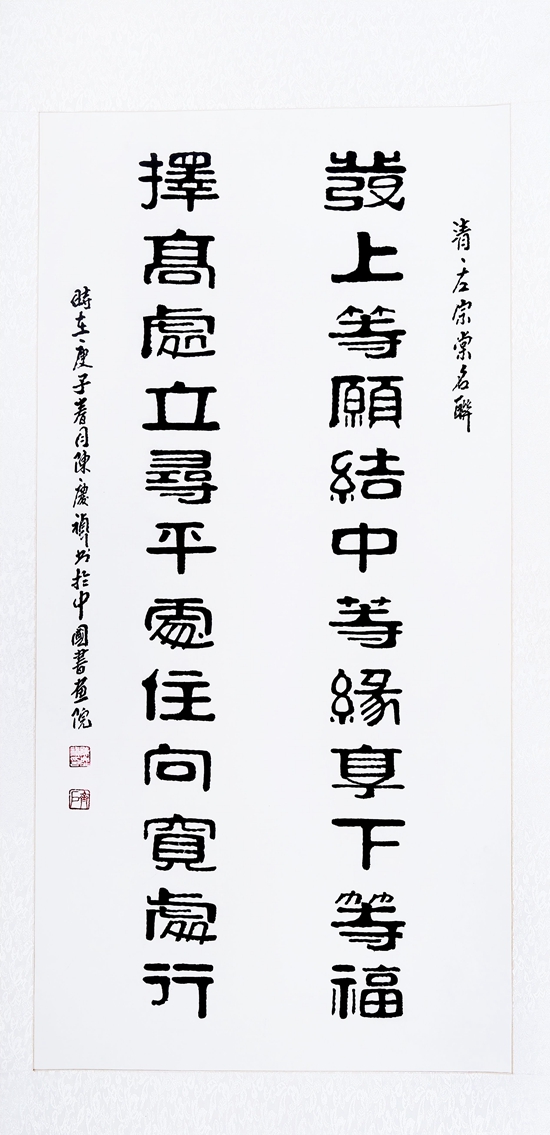 清、左宗棠名聯
發上等願結中等緣享下等福
擇高處立尋平處住向寬處行
時在庚子春月陳慶禎書於中國書画院